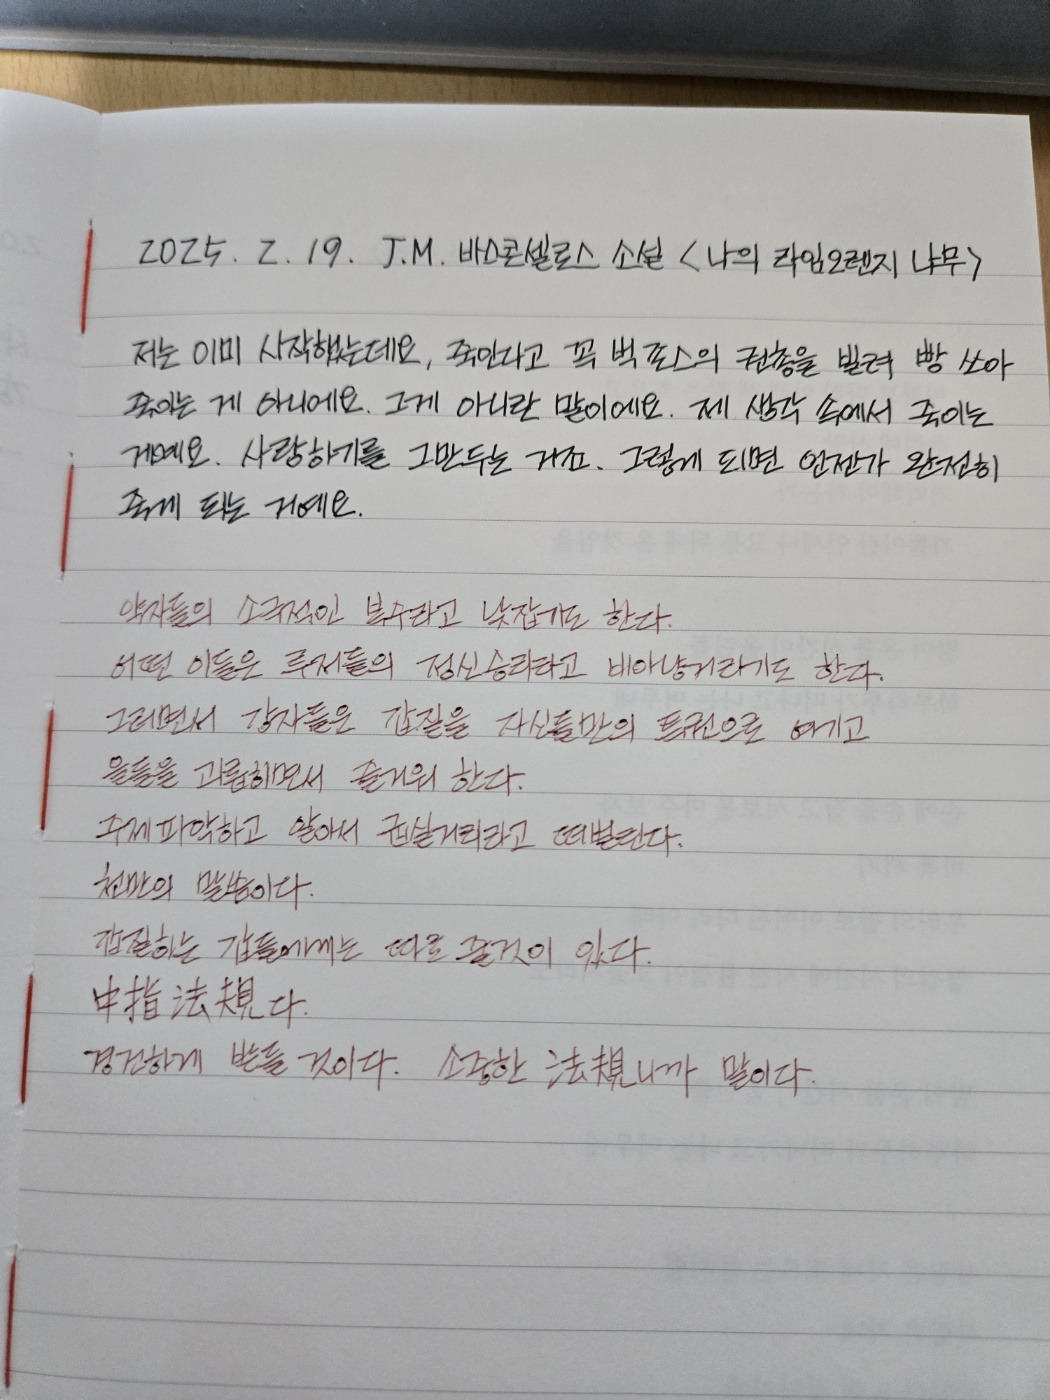 2025. 2. 19. J.M. 바스콘셀로스 소설 <나의 라임오렌지 나무>
저는 이미 시작했는데요, 죽인다고 꼭 벅 존스의 권총을 빌려 빵 쏘아
죽이는 게 아니에요. 그게 아니란 말이에요. 제 생각 속에서 죽이는
게예요. 사랑하기를 그만두는 거죠. 그렇게 되면 언젠가 완전히
죽게 되는 거예요.
약자들의 소극적인 복수라고 낮잡기도 한다.
어떤 이들은 루저들의 정신승리라고 비아냥거리기도 한다.
그러면서 강자들은 갑질을 자신들만의 특권으로 여기고
을들을 괴롭히면서 즐거워 한다.
주제파악하고 알아서 굽실거리라고 떠벌린다.
천만의 말씀이다.
갑질하는 갑들에게는 따로 줄것이 있다.
中指法規다.
경건하게 받들 것이다. 소중한 法規니까 말이다.